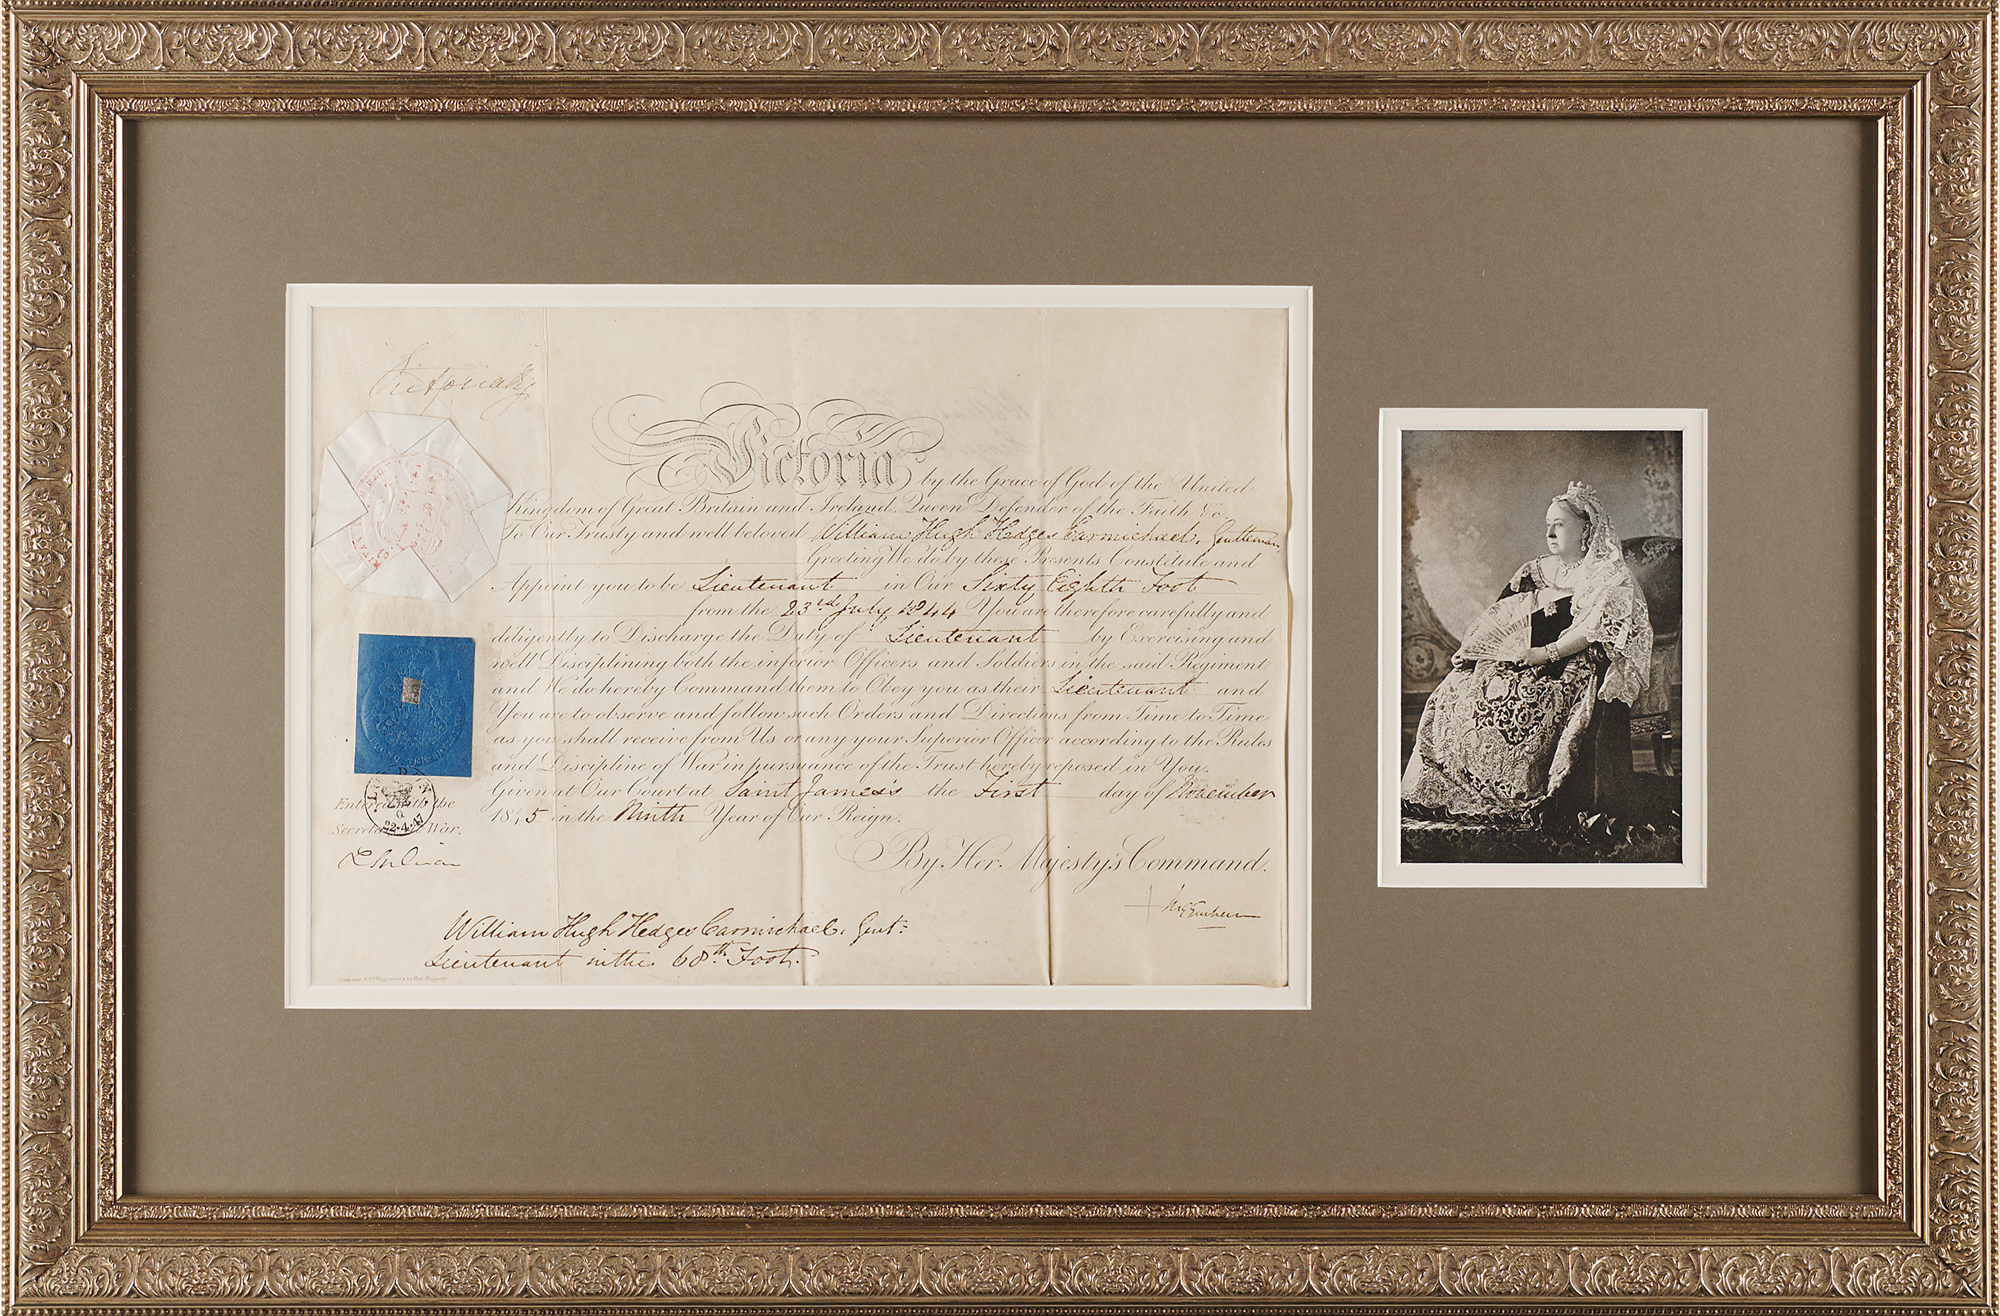 Victoria R
Victoria by the Grace of God of the United
Kingdom of Great Britain and Ireland, Queen Defender of the Faith &c.
To Our Trusty and well beloved William Hugh Hedges Carmichael, Gentleman
Greeting We do by these Presents Constitute and
Appoint you to be Lieutenant in Our Sixty Eighth Foot
from the 23rd July 1844 You are therefore carefully and
diligently to Discharge the Duty of Lieutenant by Exercising and
well Disciplining both the inferior Officers and Soldiers in the said Regiment
and We do hereby Command them to Obey you as their Lieutenant and
You are to observe and follow such Orders and Directions from Time to Time
as you shall receive from Us or any your Superior Officer according to the Rules
and Discipline of War in pursuance of the Trust hereby reposed in You.
Given at Our Court at Saint James's the First day of November
1845 in the Ninth Year of Our Reign.
By Her Majesty's Command.
Entered with the
Secretary War.
22.4.47
William Hugh Hedges Carmichael, Gent:
Lieutenant in the 68th Foot.
Engravers to Her Majesty